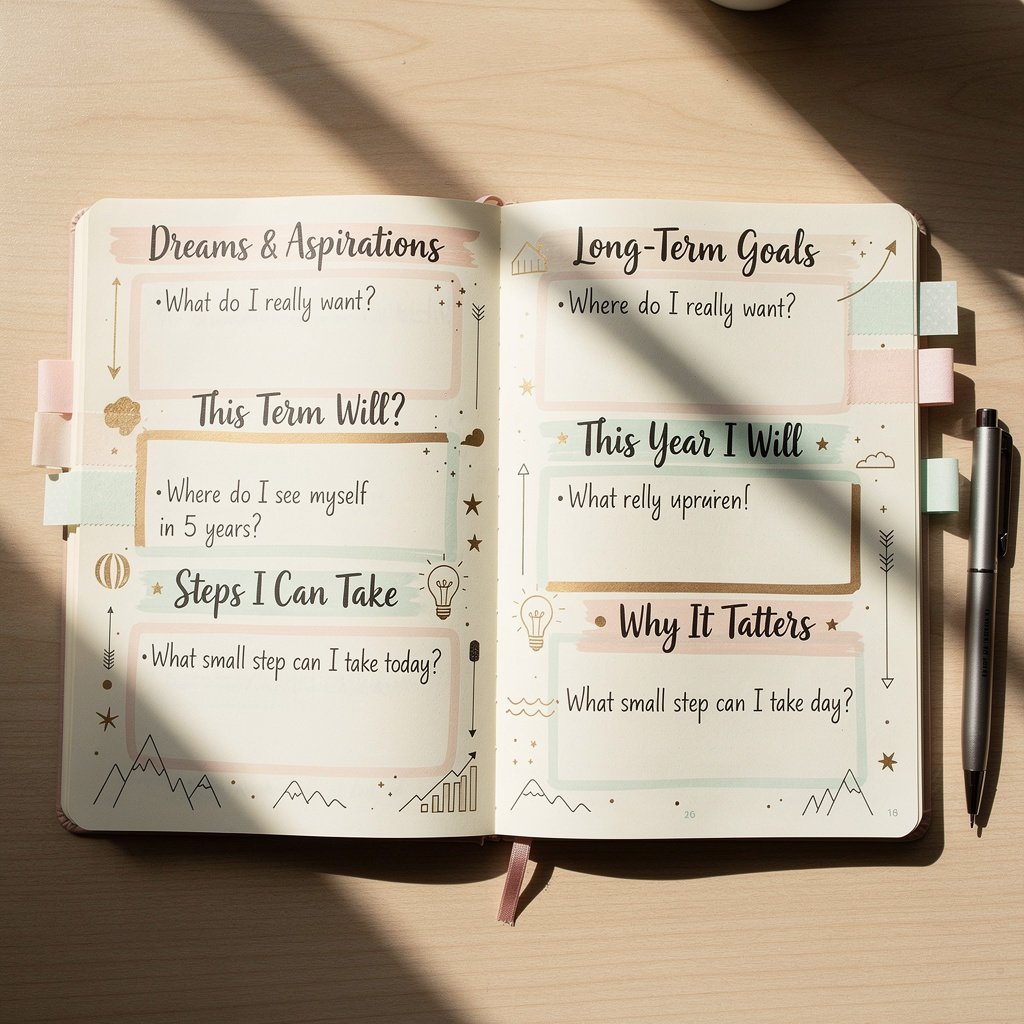 Dreams & Aspirations
• What do I really want?
This Term Will?
• Where do I see myself
in 5 years?
Steps I Can Take
• What small step can I take today?
Long-Term Goals
• Where do I really want?
This Year I Will
• What relly upruiren!
Why It Tatters
What small step can I take day?
26
16